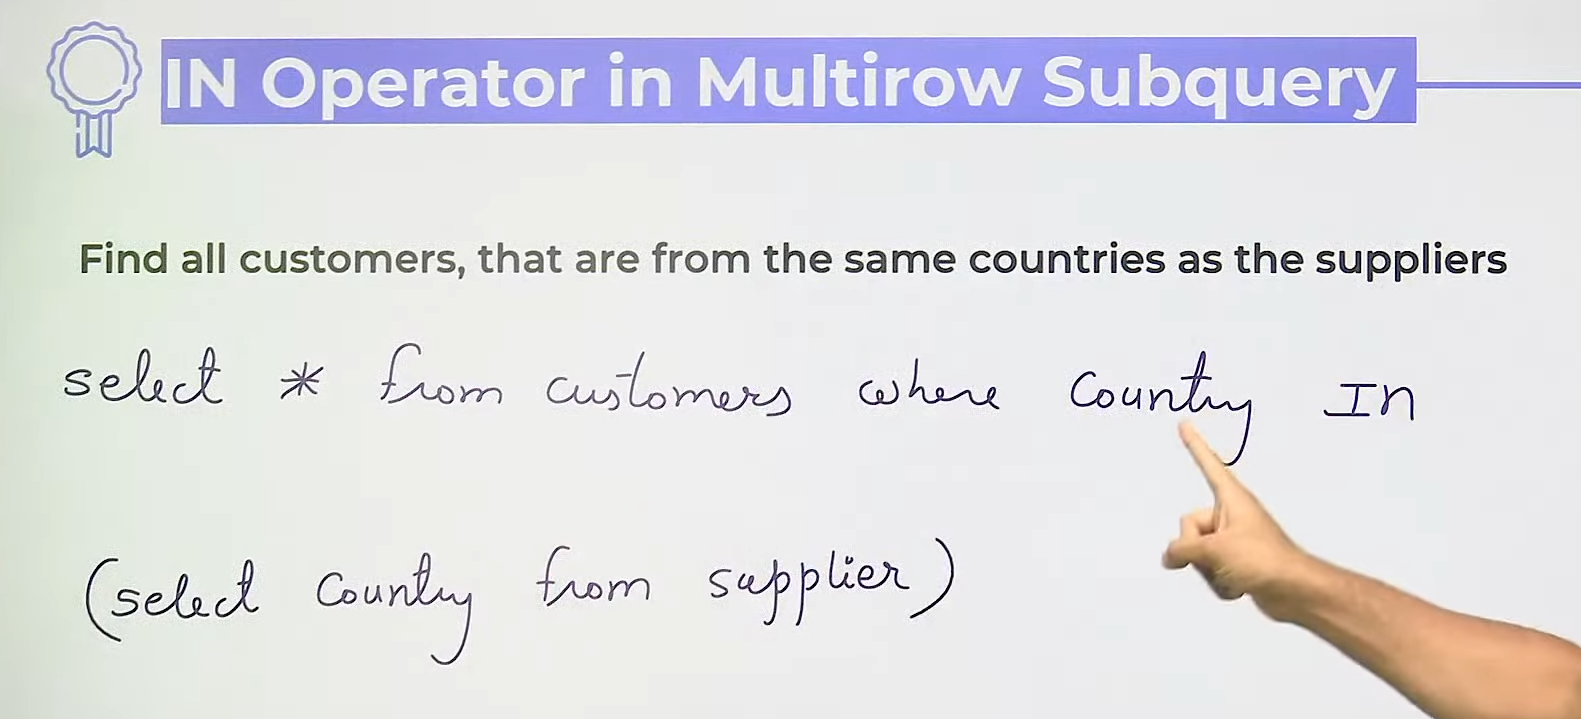 IN Operator in Multirow Subquery
Find all customers, that are from the same countries as the suppliers
select * from customers where Country In
(select Country from supplier)